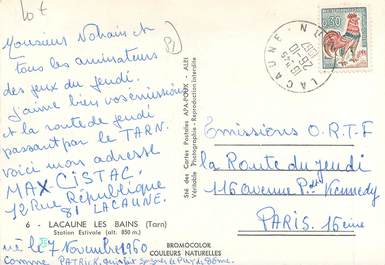 10f
Monsieur Nohain et
tous les animateurs
des jeux du jeudi.
j'aime bien vos émissions
et la route de jeudi
passant par le TARN.
voici mon adresse
MAX CISTAC
12 Rue République
81 LACAUNE.
6 - LACAUNE LES BAINS (Tarn)
Station Estivale (alt. 850 m.)
né le 7 Novembre 1960
comme PATRICK
BROMOCOLOR
COULEURS NATURELLES
Sté des Cartes Postales APA-POUX - ALBI
Véritable Photographie - Reproduction interdite
LACAUNE
0,30
Emissions O.R.T.F
la Route du jeudi
116 avenue Pdt Kennedy
PARIS. 16ème